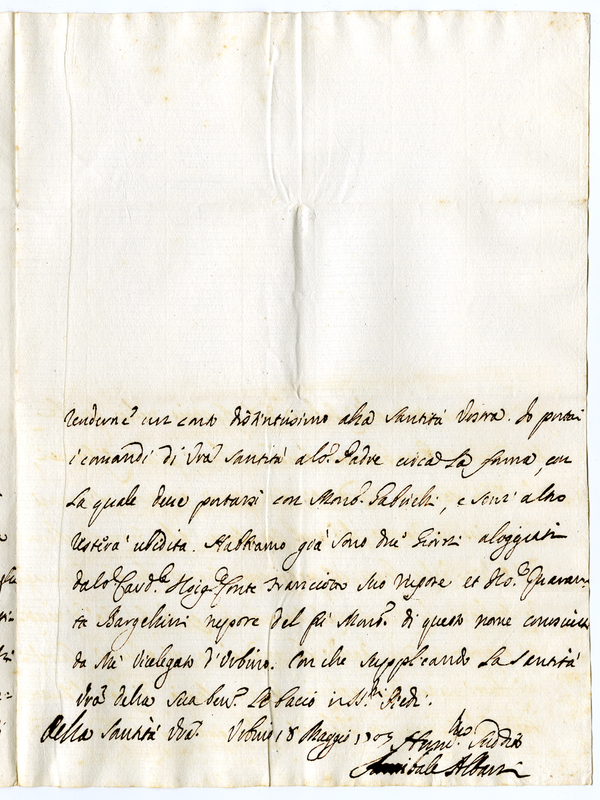 renderne un conto distintissimo alla Santità Vostra. Io portai
i comandi di Vrã Santità al Padre circa la forma, con
la quale deve portarsi con Monsr. Gabrieli, e senz'altro
resterà ubidita. Habbiamo già sono due Giorni alogiati
dal Cardle. Conte Franciotto suo nepote et
Bargellini nepote del fù Monsr. di questo nome conosciuto
da Mè Vicelegato d'Urbino. Con che supplicando la Santità
Vrã della Sua ben. Le bacio i Piedi.
Della Santità Vrã. Urbino 18 Maggio
Hum. Suddito
Annibale Albani